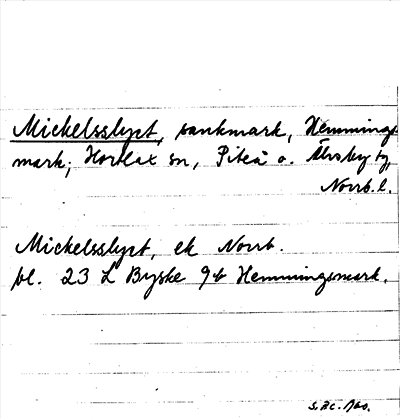 Mickelsslyet, sankmark, Hemmings-
mark, Hortlax sn, Piteå o. Älvsby tg,
Norrb. l.
Mickelsslyet, ek Norrb.
bl. 23 L Byske 9b Hemmingsmark.